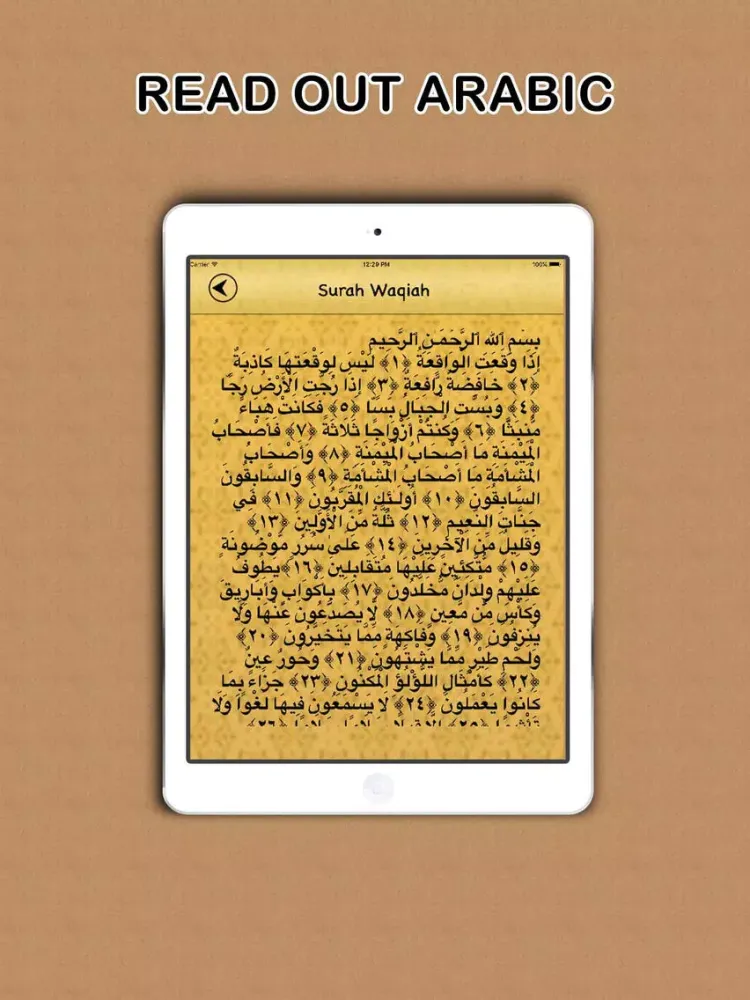 READ OUT ARABIC
Carrier
12:29 PM
100%
Surah Waqiah
بِسْمِ اللهِ الرَّحْمَـنِ الرَّحِيمِ
إِذَا وَقَعَتِ الْوَاقِعَةُ ﴿١﴾ لَيْسَ لِوَقْعَتِهَا كَاذِبَةٌ
﴿٢﴾ خَافِضَةٌ رَّافِعَةٌ ﴿٣﴾ إِذَا رُجَّتِ الْأَرْضُ رَجًّا
﴿٤﴾ وَبُسَّتِ الْجِبَالُ بَسًّا ﴿٥﴾ فَكَانَتْ هَبَاءً
مُّنبَثًّا ﴿٦﴾ وَكُنتُمْ أَزْوَاجًا ثَلَاثَةً ﴿٧﴾ فَأَصْحَابُ
الْمَيْمَنَةِ مَا أَصْحَابُ الْمَيْمَنَةِ ﴿٨﴾ وَأَصْحَابُ
الْمَشْأَمَةِ مَا أَصْحَابُ الْمَشْأَمَةِ ﴿٩﴾ وَالسَّابِقُونَ
السَّابِقُونَ ﴿١٠﴾ أُولَـئِكَ الْمُقَرَّبُونَ ﴿١١﴾ فِي
جَنَّاتِ النَّعِيمِ ﴿١٢﴾ ثُلَّةٌ مِّنَ الْأَوَّلِينَ ﴿١٣﴾
وَقَلِيلٌ مِّنَ الْآخِرِينَ ﴿١٤﴾ عَلَى سُرُرٍ مَّوْضُونَةٍ
﴿١٥﴾ مُّتَّكِئِينَ عَلَيْهَا مُتَقَابِلِينَ ﴿١٦﴾يَطُوفُ
عَلَيْهِمْ وِلْدَانٌ مُّخَلَّدُونَ ﴿١٧﴾ بِأَكْوَابٍ وَأَبَارِيقَ
وَكَأْسٍ مِّن مَّعِينٍ ﴿١٨﴾ لَا يُصَدَّعُونَ عَنْهَا وَلَا
يُنزِفُونَ ﴿١٩﴾ وَفَاكِهَةٍ مِّمَّا يَتَخَيَّرُونَ ﴿٢٠﴾
وَلَحْمِ طَيْرٍ مِّمَّا يَشْتَهُونَ ﴿٢١﴾ وَحُورٌ عِينٌ
﴿٢٢﴾ كَأَمْثَالِ اللُّؤْلُؤِ الْمَكْنُونِ ﴿٢٣﴾ جَزَاءً بِمَا
كَانُوا يَعْمَلُونَ ﴿٢٤﴾ لَا يَسْمَعُونَ فِيهَا لَغْوًا وَلَا